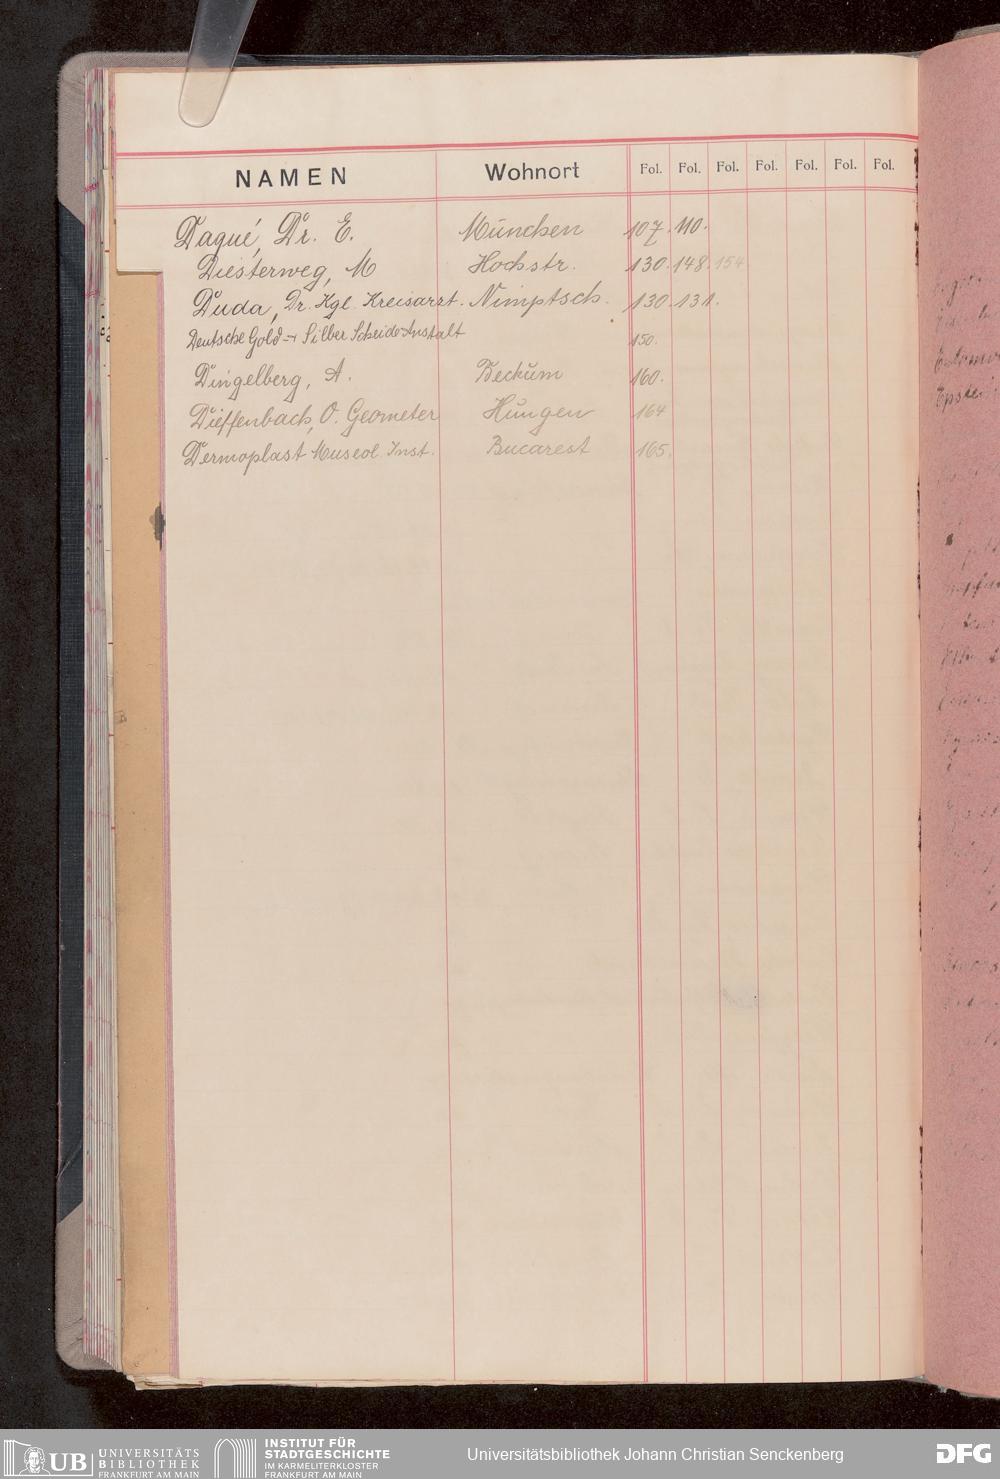 NAMEN Wohnort Fol. Fol. Fol. Fol. Fol. Fol. Fol.
Daqué, Dr. E. München 107. 110.
Diesterweg, M Hochstr. 130. 148. 154
Duda, Dr. Kgl. Kreisarzt. Nimptsch. 130. 131.
Deutsche Gold- & Silber Scheide-Anstalt 150.
Dingelberg, A. Beckum 160.
Dieffenbach, O. Geometer Hungen 164
Dermoplast Museol. Inst. Bucarest 165.
UB UNIVERSITÄTS
BIBLIOTHEK
FRANKFURT AM MAIN
INSTITUT FÜR
STADTGESCHICHTE
IM KARMELITERKLOSTER
FRANKFURT AM MAIN
Universitätsbibliothek Johann Christian Senckenberg
DFG